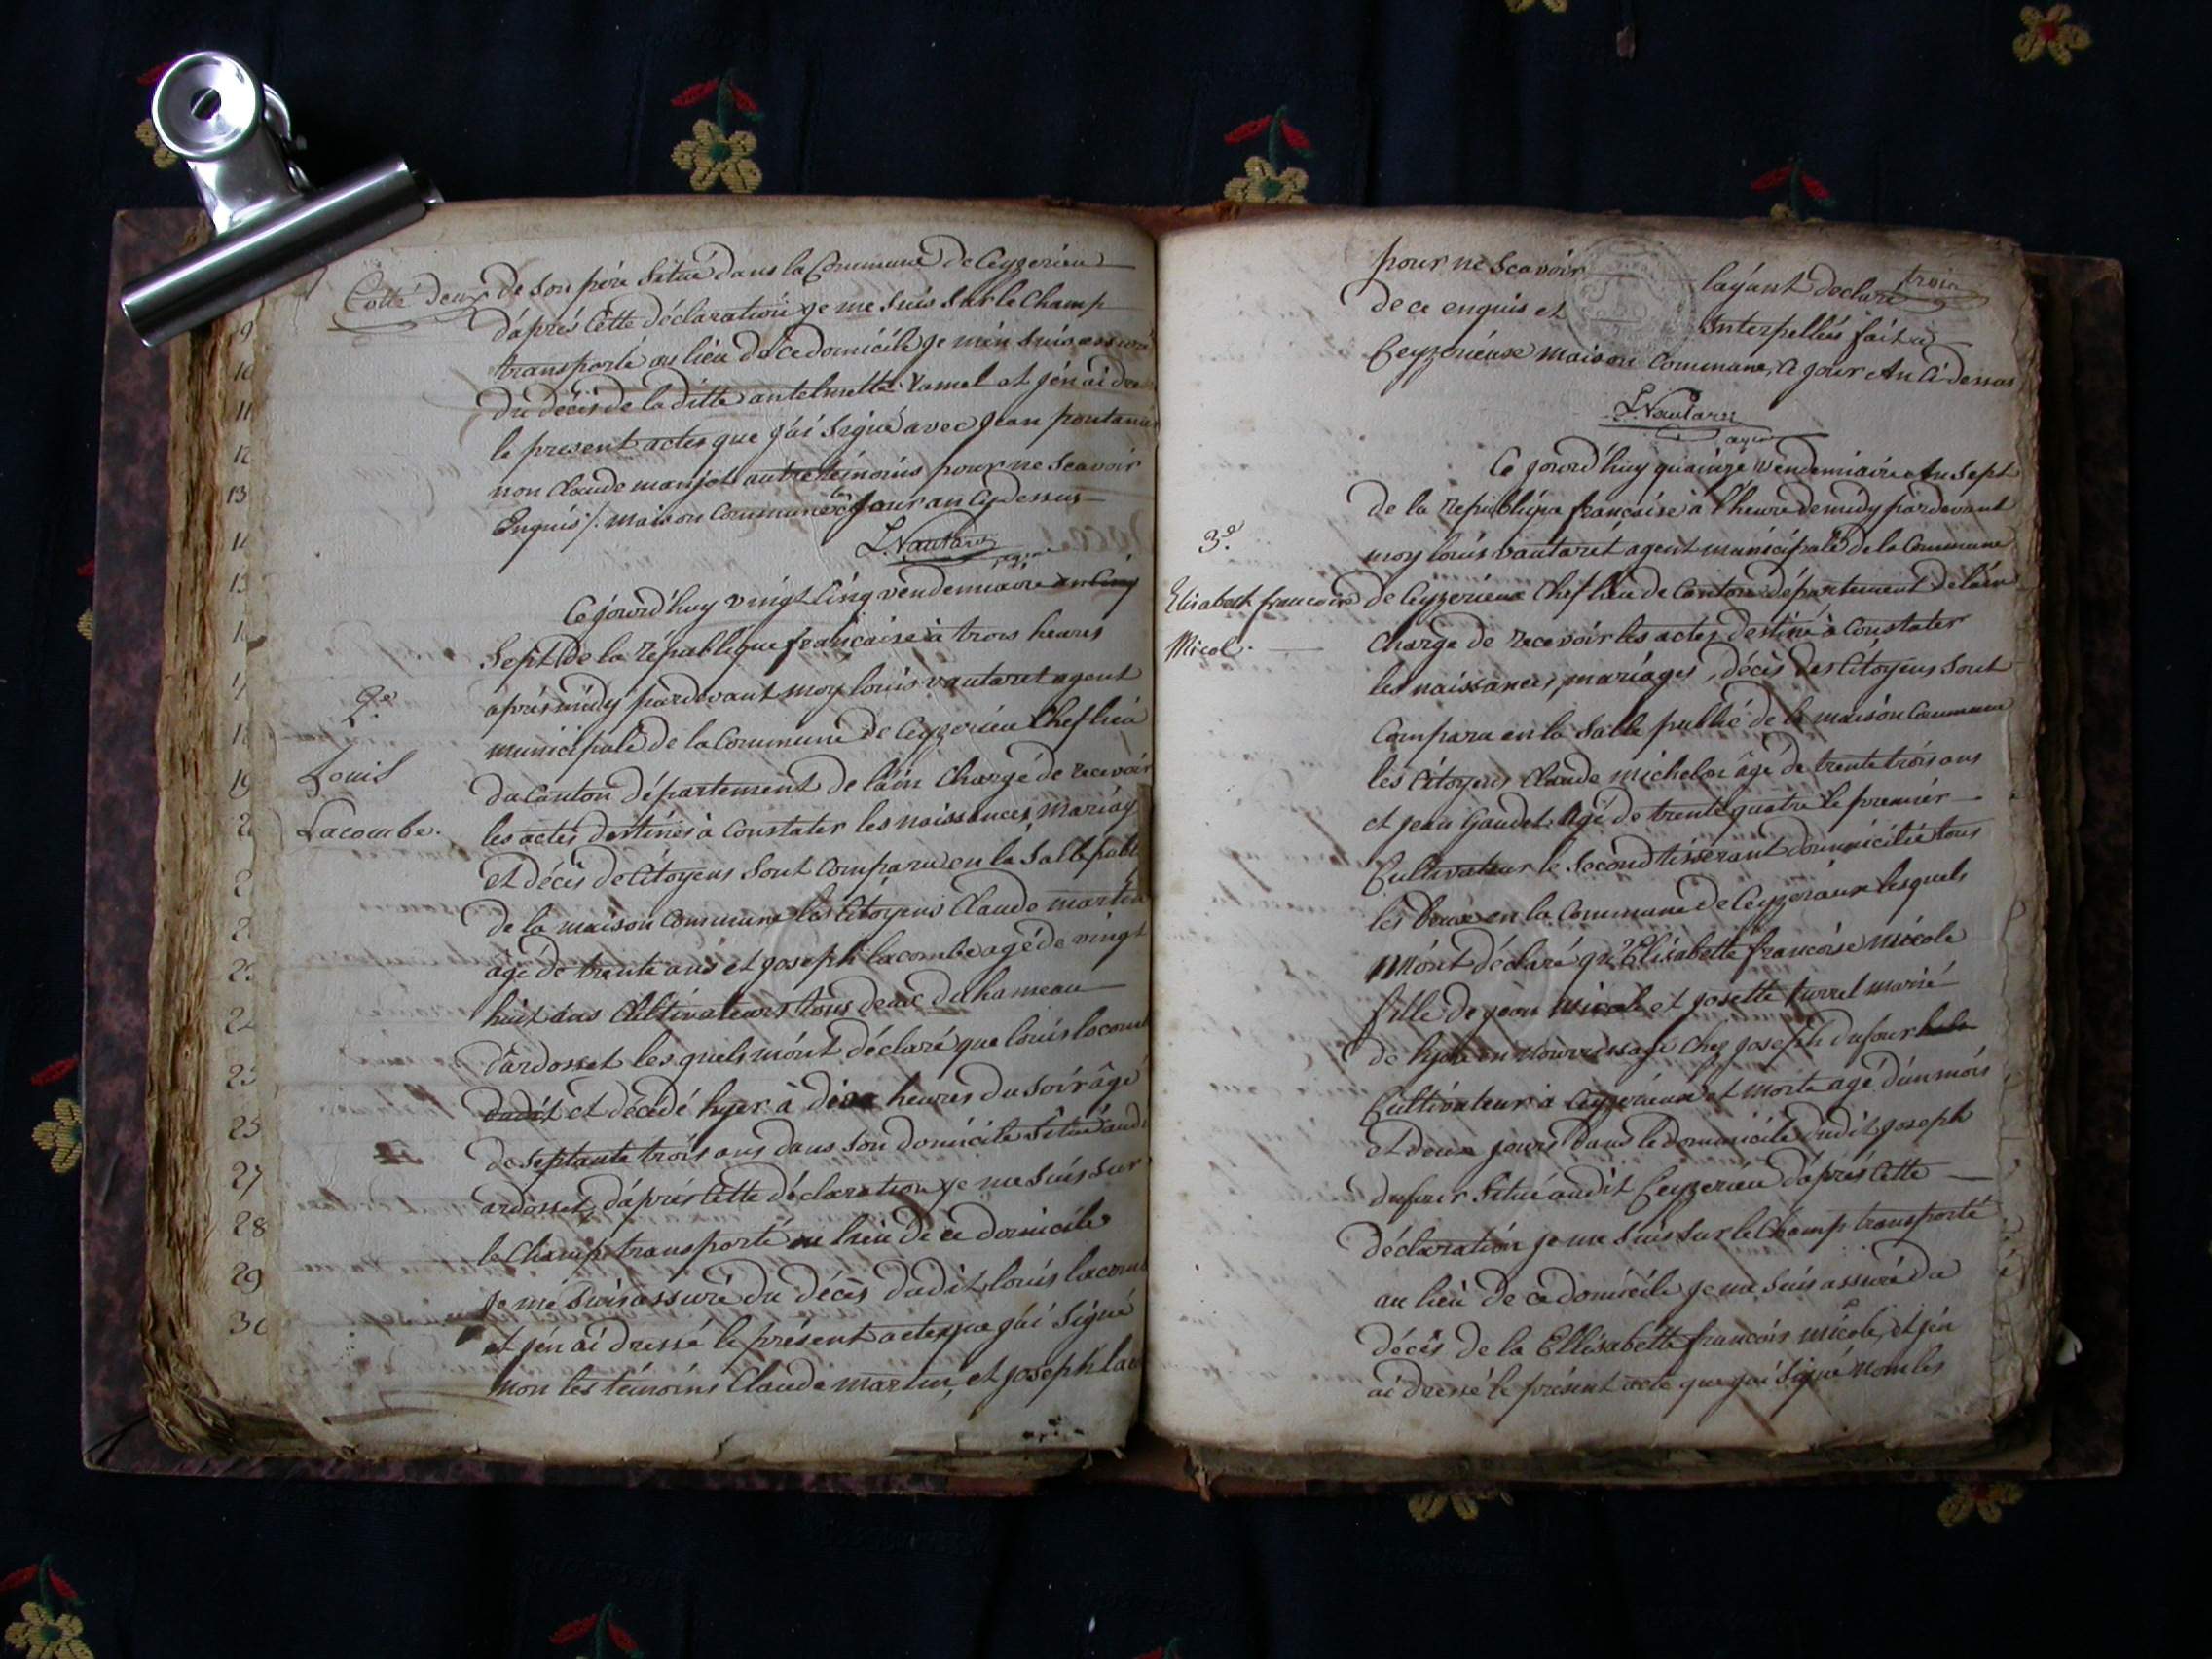 Cotté deux
de son pére Situé dans la Commune de Ceyzerieu
d'aprés Cette déclaration je me Suis Sur le Champ
transporté au lieu de ce domicile je m'en Suis assuré
du décés de la ditte antelmette Vamel et j'en ai
le present actes que j'ai Signé avec jean
non Claude monjot autre témoins pour ne Scavoir
Enquis /. maison Commune les jour an Cy dessus
L. Vautaret
agent
Ce jourd'huy vingt Cinq vendemiaire an Cinq
Sept de la république française à trois heures
aprés midy pardevant moy louis vautaret agent
municipale de la Commune de Ceyzerieu Chef lieu
du Canton département de l'ain Chargé de recevoir
les actes destinés à Constater les naissances mariag
et décés de Citoyens Sont Comparu en la Salle publ
de la maison Commune les Citoyens Claude martin
âgé de trente ans et joseph lacombe agé de vingt
huit ans Cultivateurs tous deux du hameau
d'ardosset les quels m'ont déclaré que louis lacom
dudit et décédé hyer à dixa heures du Soir âgé
de Septante trois ans dans Son domicile Situé audi
ardosset, d'aprés Cette déclaration je me Suis Sur
le Champ transporté au lieu de ce domicile
je me Suis assuré du décés dudit louis lacom
et j'en ai dressé le présent actes que j'ai Signé
non les témoins Claude martin, et joseph Lac
2e
Louis
Lacombe.
9
10
11
12
13
14
19
23
27
28
29
pour ne Scavoir layant declaré
trois
de ce enquis et Interpellés fait à
Ceyzerieux maison Commune, a jour An Ci dessus
L. Vautaret
agent
Ce jourd'huy quainze Vendemiaire An Sept
de la république française à l'heure de midy pardevant
moy louis vautaret agent municipale de la Commune
de Ceyzerieux Chef lieu de Canton département de l'ain
Chargé de recevoir les actes destiné à Constater
les naissances, mariages, décés des Citoyens Sont
Comparu en la Salle publié de la maison Commune
les Citoyens Claude michelon âgé de trente trois ans
et jean Gaudet Agé de trente quatre le premier
Cultivateur le Second tisserant domicilié tous
les deux en la Commune de Ceyzerieux lesquels
m'ont déclaré qu'Elisabette françoise micole
fille de jean micole et josette furret marié
de lyon en nourrissage Chez joseph dufour
Cultivateur à Ceyzerieux et morte agé d'un mois
et deux jours dans le domicile dudit joseph
dufour Situé audit Ceyzerieu d'aprés Cette
déclaration je me Suis Sur le Champ transporté
au lieu de ce domicile je me Suis assuré du
décés de la Ellisabette francois micole, et j'en
ai dressé le présent acte que j'ai Signé non les
3e
Elisabeth francoise
Micol.